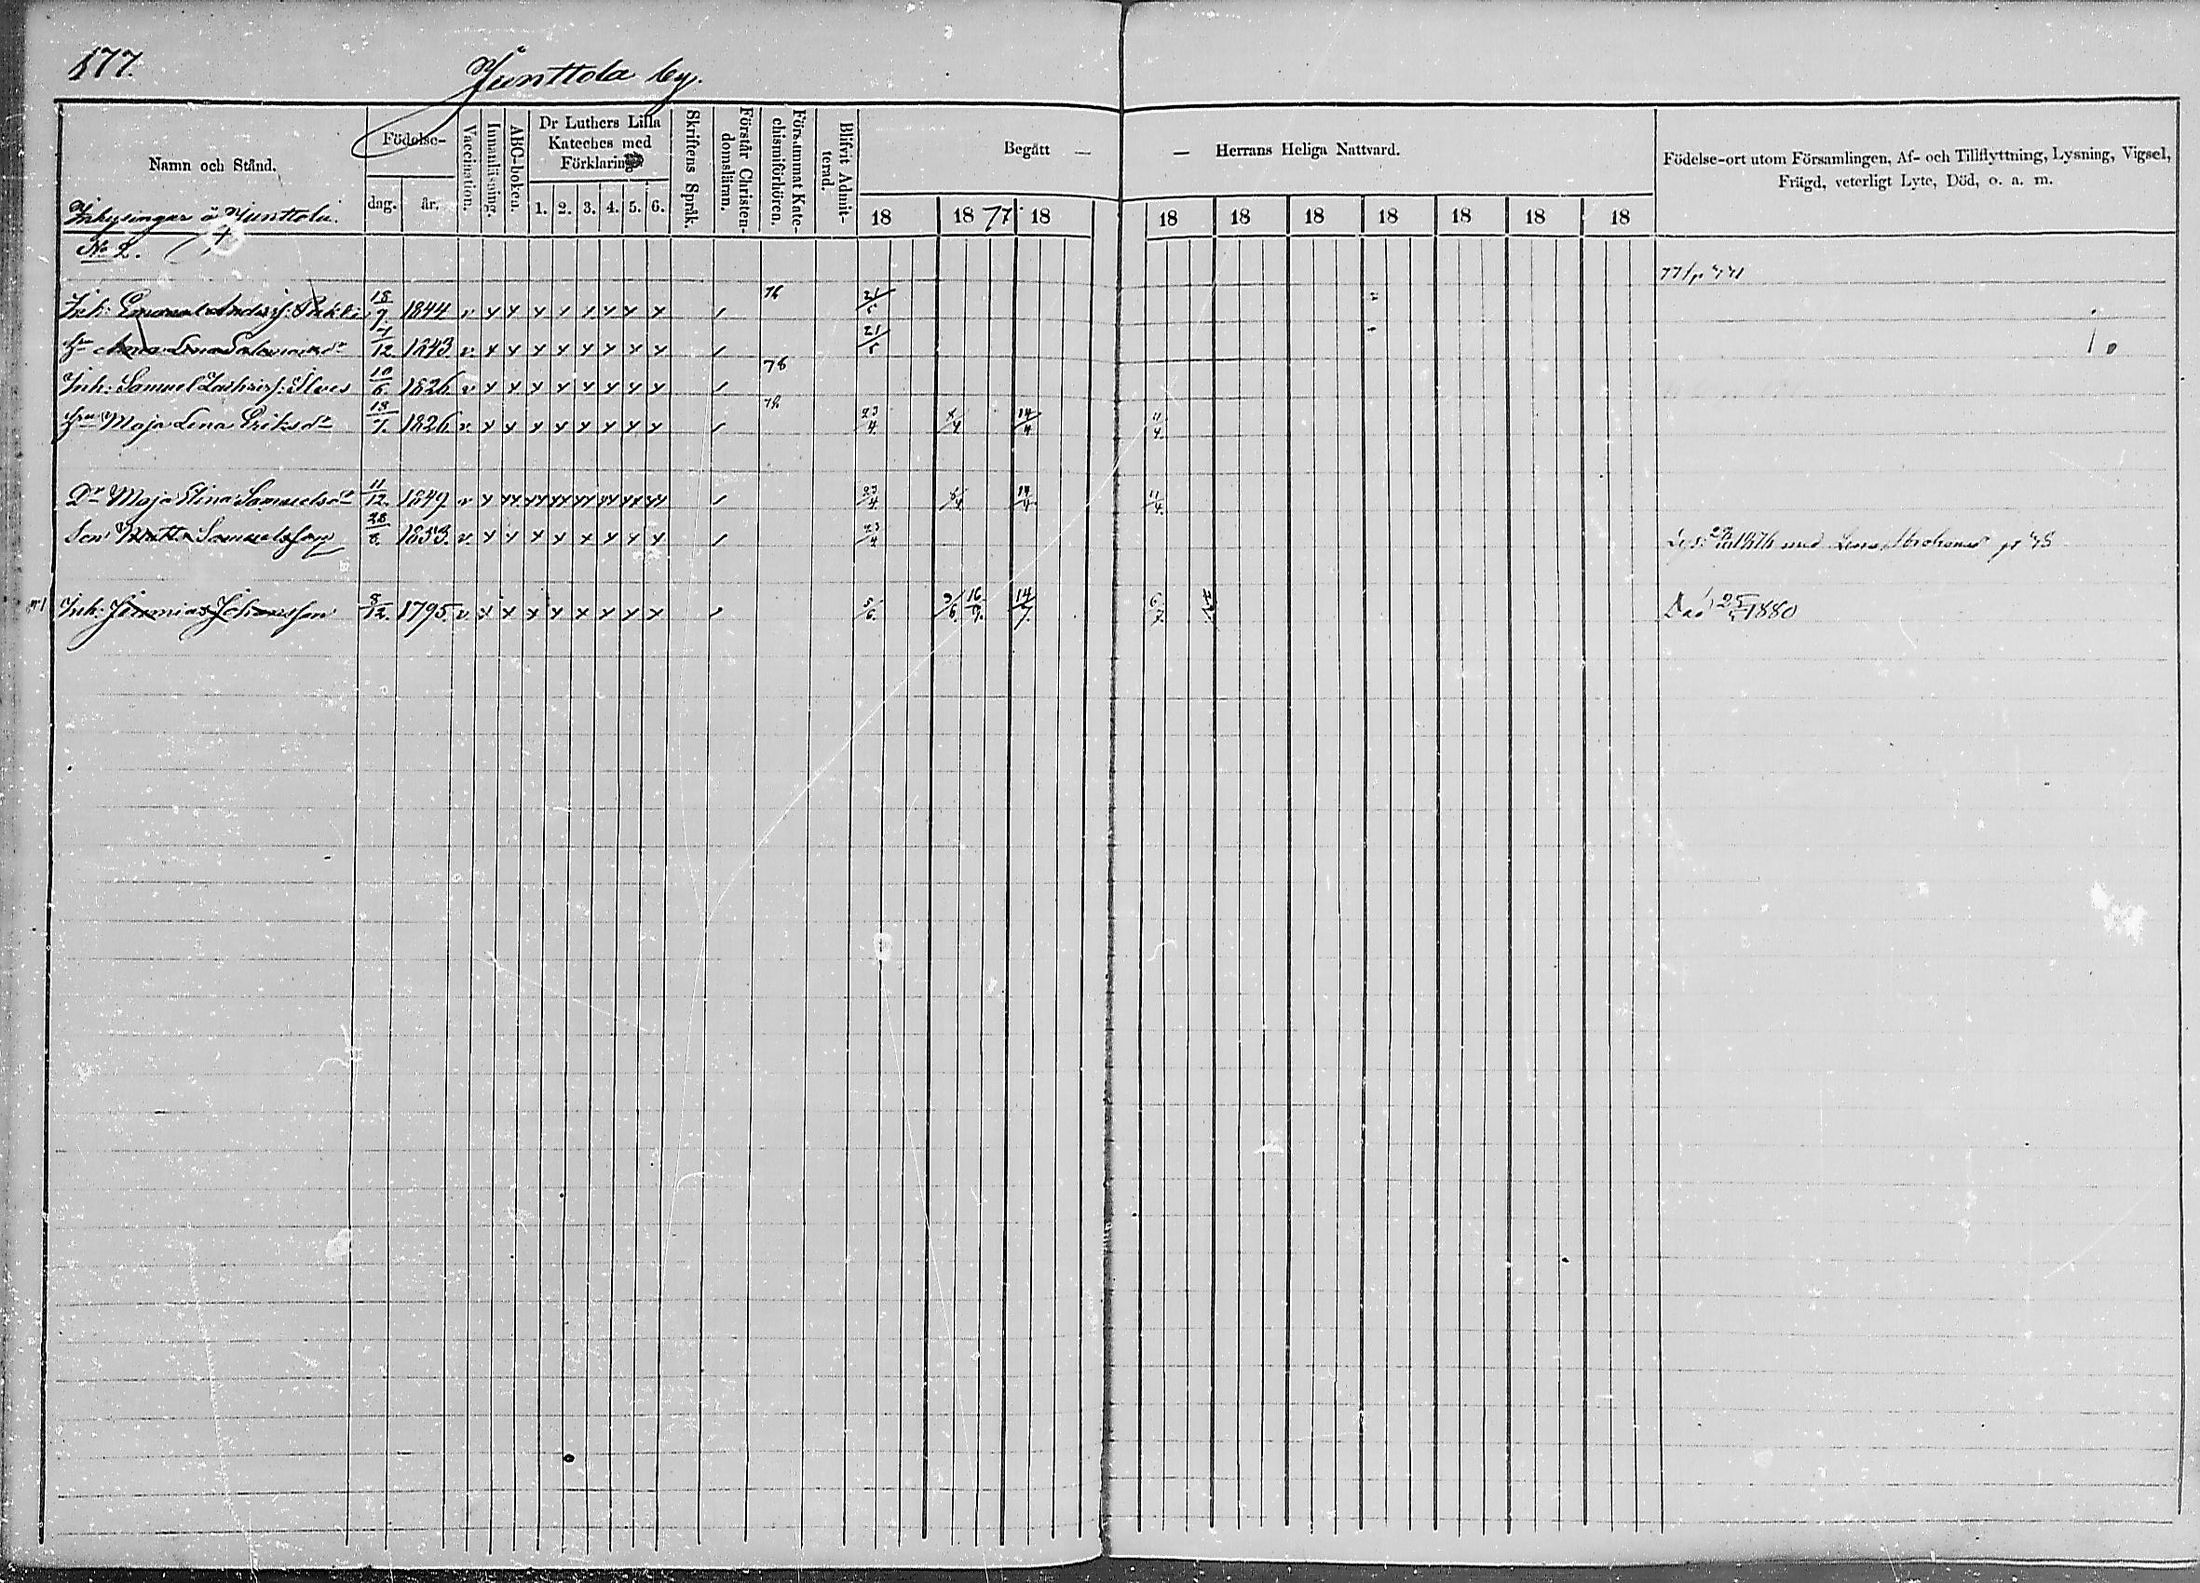 177.
Junttola by.
Namn och Stånd.
Födelse-
dag.
år.
Vaccination.
Innanläsning.
ABC-boken.
Dr Luthers Lilla Kateches med Förklaring
1. 2. 3. 4. 5. 6.
Skriftens Språk.
Förstår Christen-domsläran.
Försummat Kate-chismiförhören.
Blifvit Admit-terad.
Begått — — Herrans Heliga Nattvard.
18 1877 18 18 18 18 18 18 18 18
Födelse-ort utom Församlingen, Af- och Tillflyttning, Lysning, Vigsel,
Frägd, veterligt Lyte, Död, o. a. m.
Inhysingar å Junttola.
No 2.
Inh: Emanuel Anderss: 18/7 1844 v x x x / / x x x / 76 21/5
Hu Anna Lena Salomonsdr 7/12 1843 v. x x x x x x x x / 21/5
Inh: Samuel Zachriss: Ilves 10/6. 1826. v x x x x x x x x / 78
Hu Maja Lena Eriksdr 18/7. 1826 v. x x x x x x x x / 76 23/4 14/4 11/4.
Dr Maja Stina Samuelsdr 11/12. 1849. v x xx xx xx xx xx xx xx / 23/4 14/4 11/4.
Son Matts Samuelsson 28/8. 1853. v. x x x x x x x x / 23/4 1876 med Lena
Inh: Jeremias Johansson 8/12. 1795. v. x x x x x x x x / 5/6. 3/6. 16/9. 14/7. 6/7. Död 25/ 1880